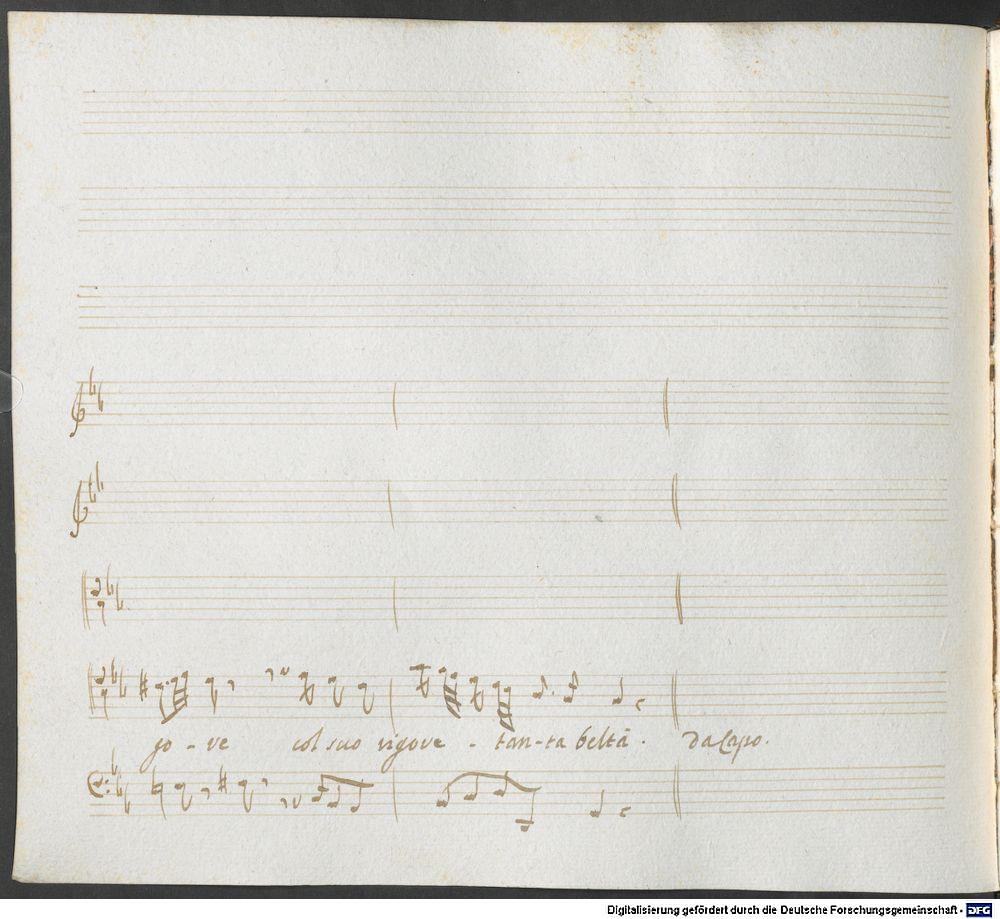 jo - ve col suo rigore - tan - ta beltà. Da Capo.
Digitalisierung gefördert durch die Deutsche Forschungsgemeinschaft - DFG